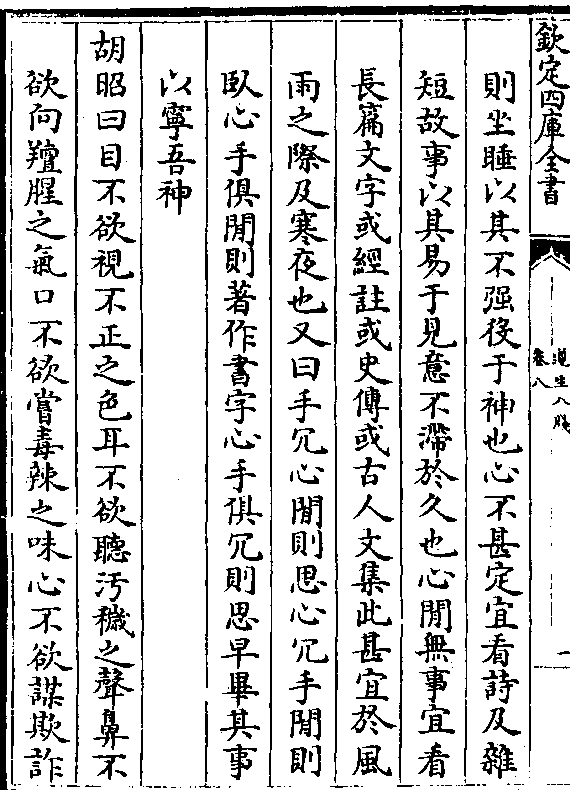 欽定四庫全書
遵生八牋
卷八
一
則坐睡以其不强役于神也心不甚定宜看詩及雜
短故事以其易于見意不滯於久也心閒無事宜看
長篇文字或經註或史傳或古人文集此甚宜於風
雨之際及寒夜也又曰手冗心閒則思心冗手閒則
臥心手俱閒則著作書字心手俱冗則思早畢其事
以寧吾神
胡昭曰目不欲視不正之色耳不欲聽汚穢之聲鼻不
欲向羶腥之氣口不欲嘗毒辣之味心不欲謀欺詐